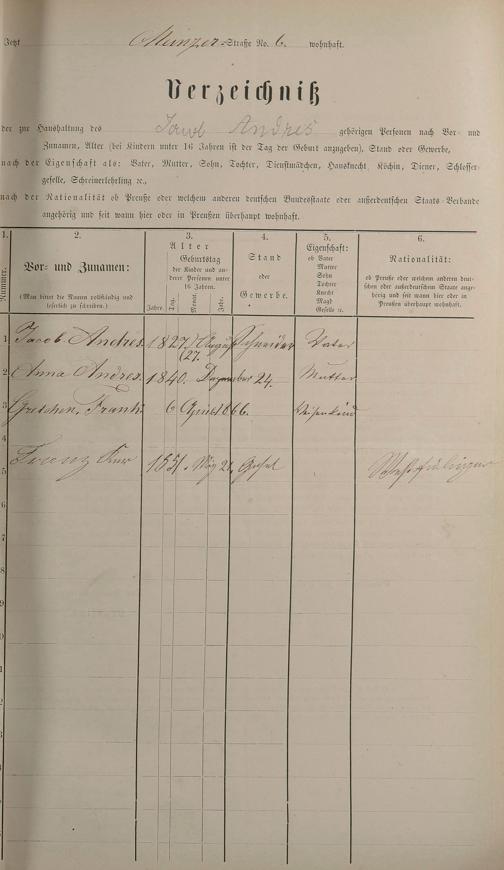 Jetzt Mainzer-Straße No. 6. wohnhaft.
Verzeichniß
der zur Haushaltung des Jacob Andres gehörigen Personen nach Vor- und
Zunamen, Alter (bei Kindern unter 16 Jahren ist der Tag der Geburt anzugeben), Stand oder Gewerbe,
nach der Eigenschaft als: Vater, Mutter, Sohn, Tochter, Dienstmädchen, Hausknecht, Köchin, Diener, Schlosser-
geselle, Schreinerlehrling ꝛc.,
nach der Nationalität ob Preuße oder welchem anderen deutschen Bundesstaate oder außerdeutschen Staats-Verbande
angehörig und seit wann hier oder in Preußen überhaupt wohnhaft.
1. 2. 3. 4. 5. 6.
Nummer.
Vor- und Zunamen:
(Man bittet die Namen vollständig und
leserlich zu schreiben.)
Alter
Geburtstag
der Kinder und an-
derer Personen unter
16 Jahren.
Jahre. Tag. Monat. Jahr.
Stand
oder
Gewerbe.
Eigenschaft:
ob Vater
Mutter
Sohn
Tochter
Knecht
Magd
Geselle ꝛc.
Nationalität:
ob Preuße oder welchem anderen deut-
schen oder außerdeutschen Staate ange-
hörig und seit wann hier oder in
Preußen überhaupt wohnhaft.
1 Jacob Andres 1827. August Schneider Vater
(27.
2 Anna Andres. 1840. Dezember 24. Mutter
3 Gretchen, Frantz 6 April 1866. Weisenkind
4
5 Franz 1851. 21.
6
7
8
9
0
1
2
3